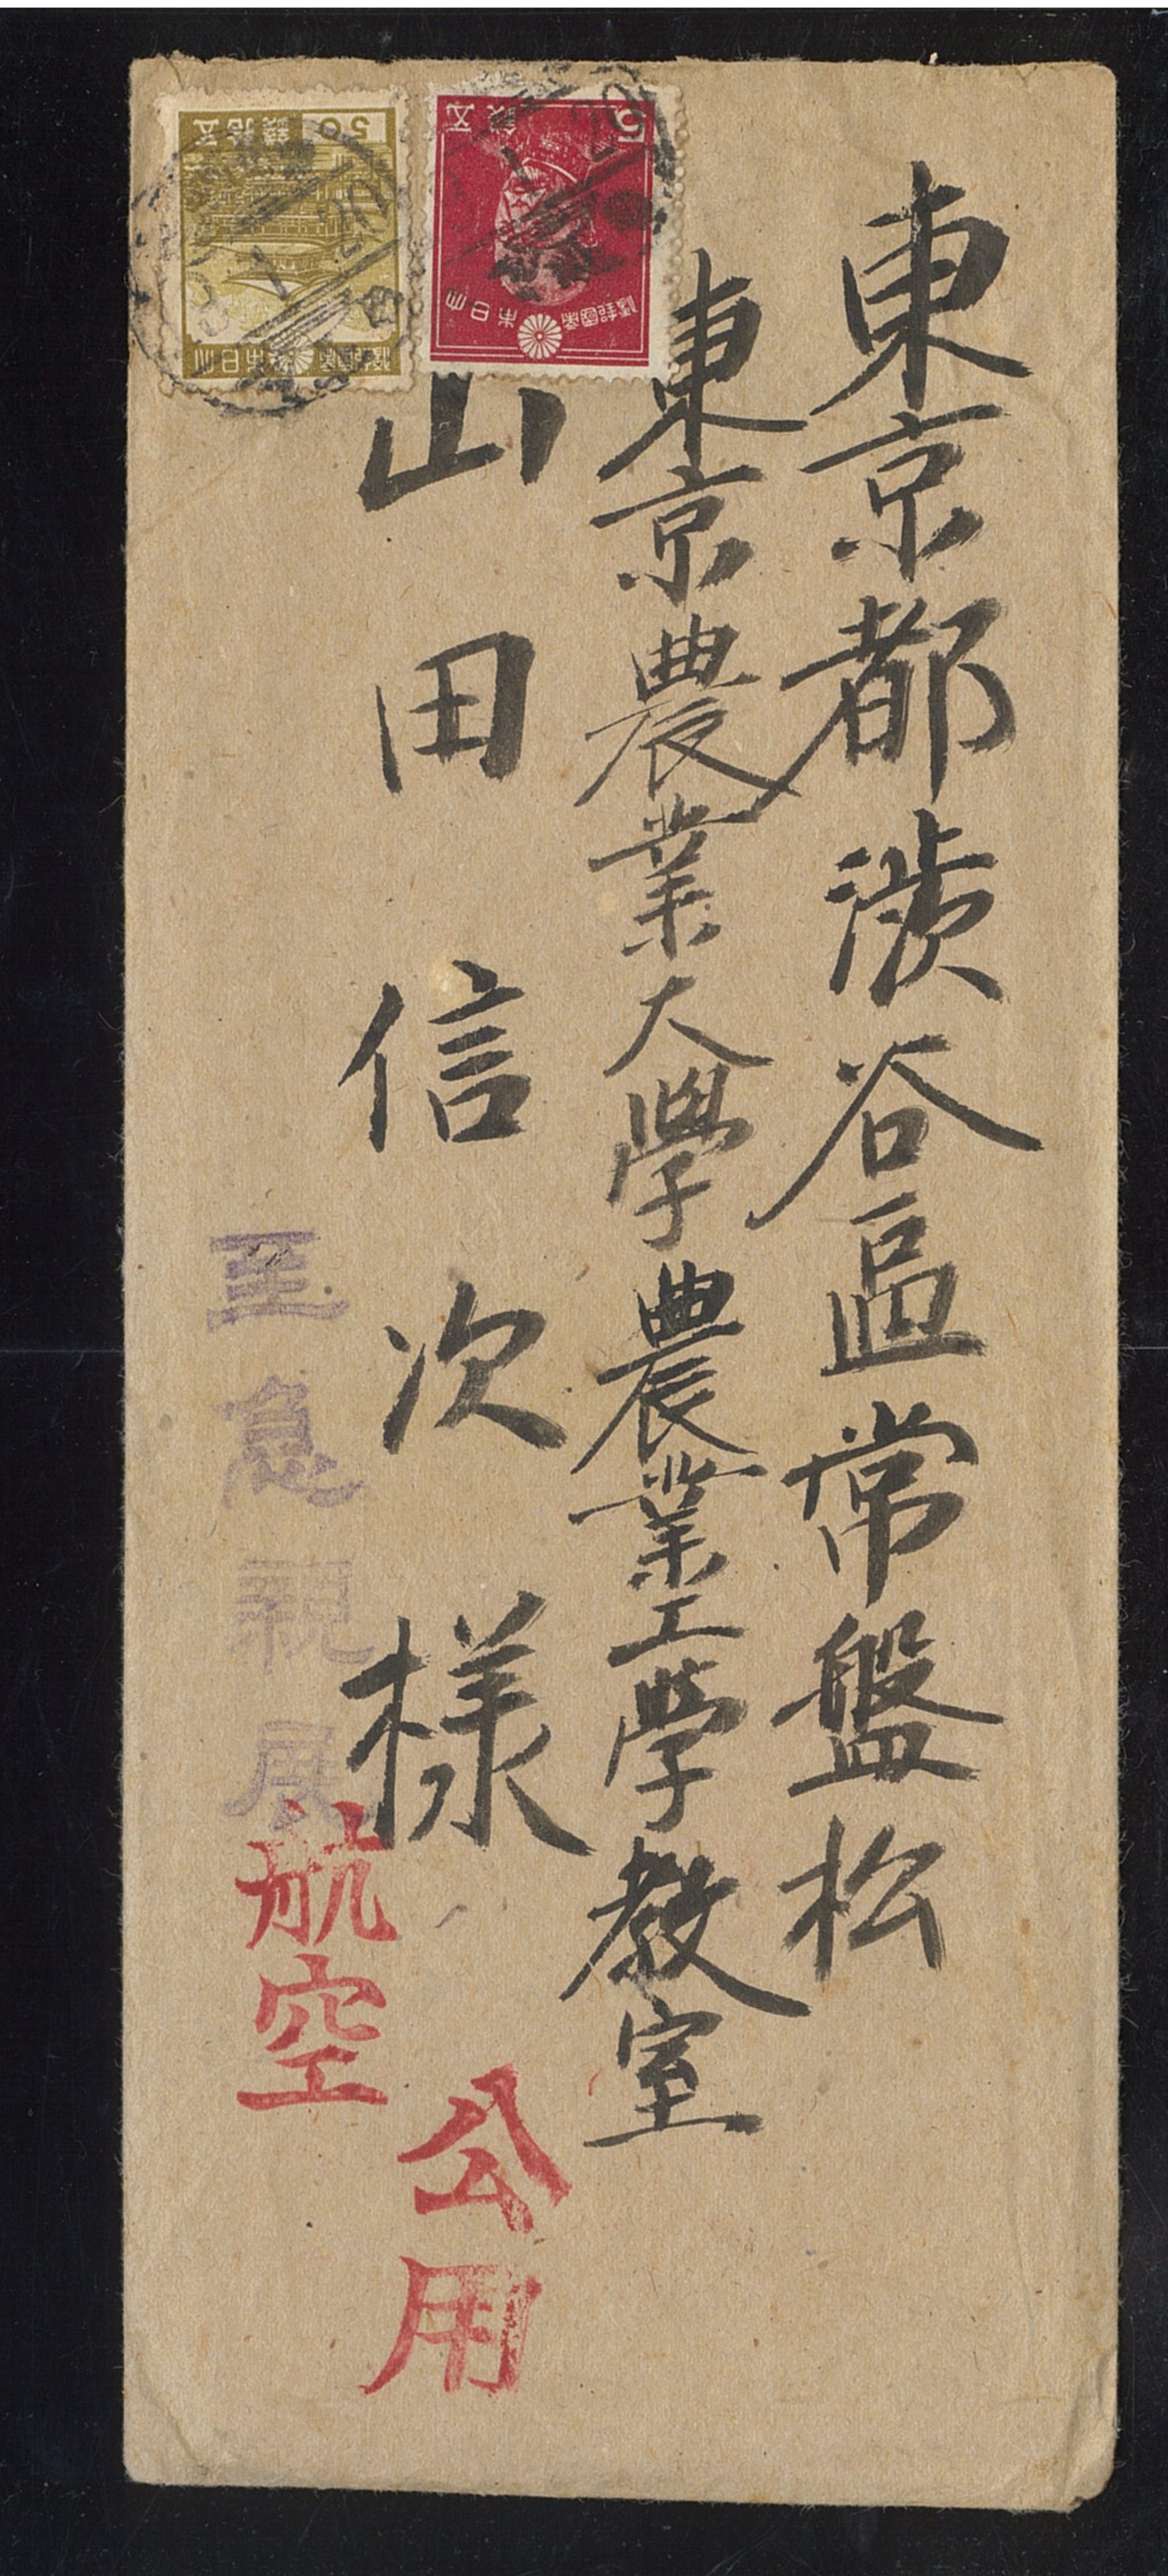 東京都澁谷區常盤松
東京農業大學農業工学教室
山田信次様
至急親展
航空
公用
50 錢拾五
大日本帝國郵便
5 錢五
大日本帝國郵便